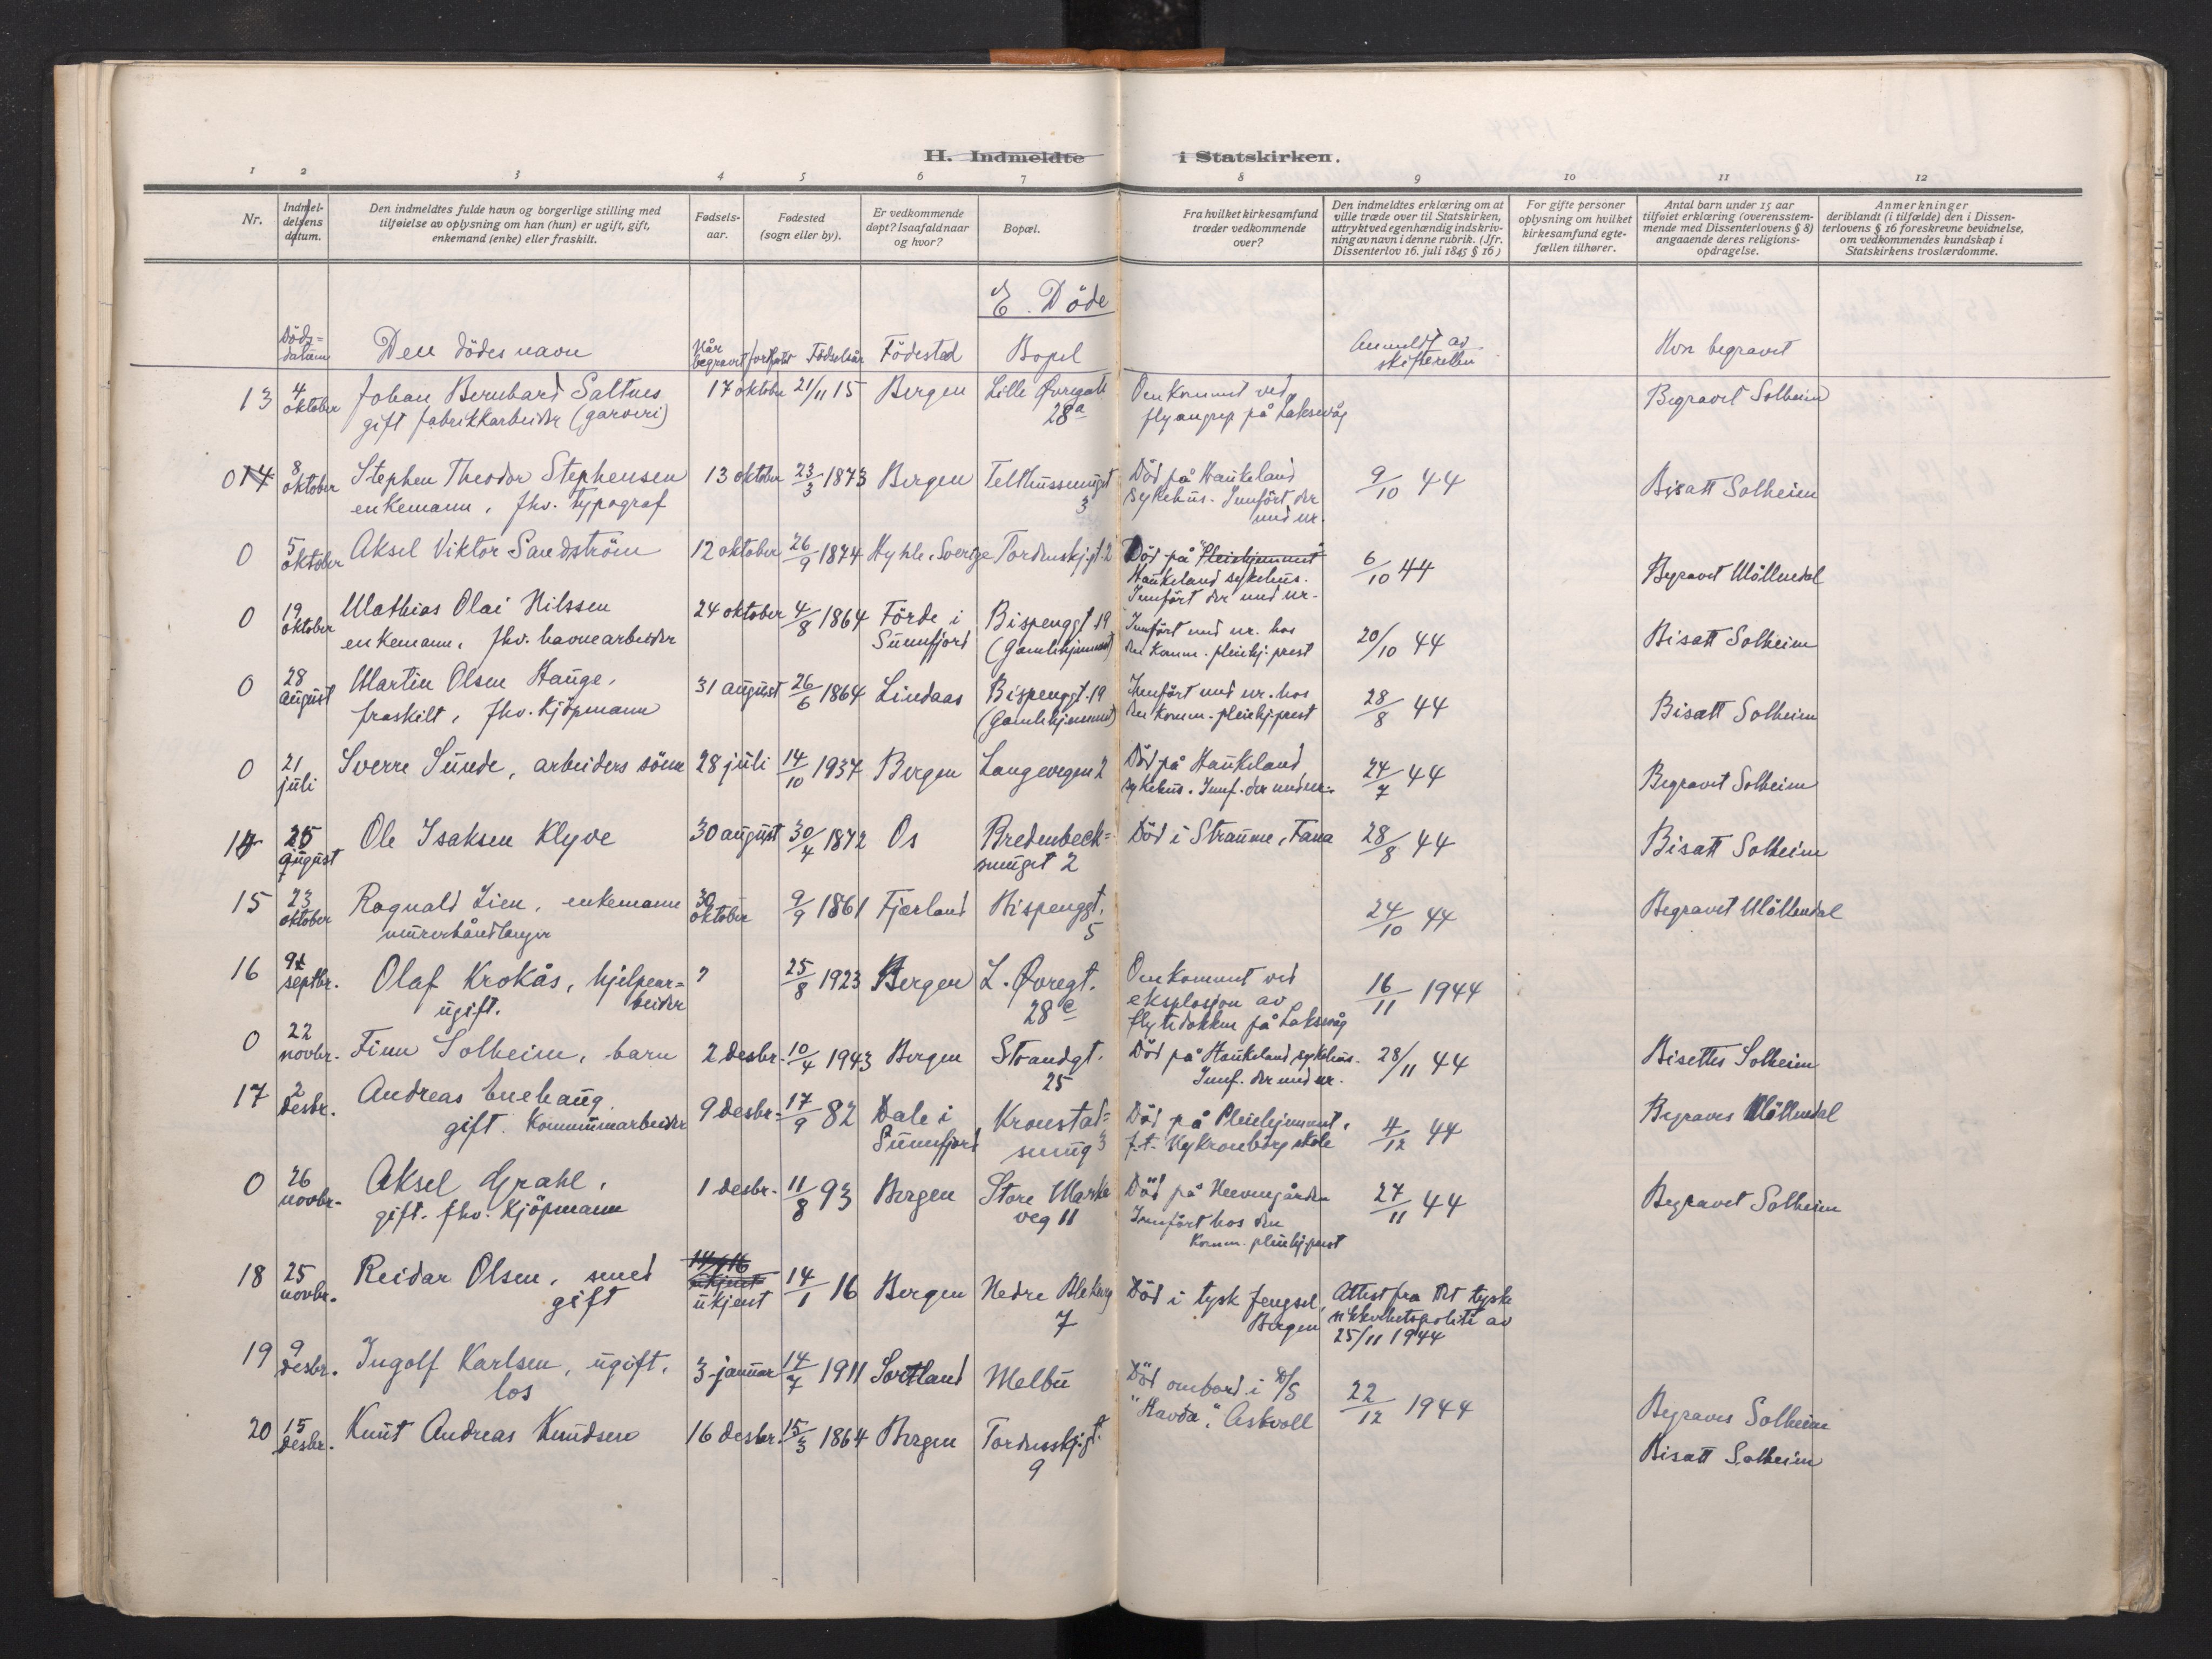 H. Indmeldte i Statskirken.
1 2 3 4 5 6 7 8 9 10 11 12
Nr.
Indmel-
delsens
datum.
Den indmeldtes fulde navn og borgerlige stilling med
tilføielse av oplysning om han (hun) er ugift, gift,
enkemand (enke) eller fraskilt.
Fødsels-
aar.
Fødested
(sogn eller by).
Er vedkommende
døpt? Isaafald naar
og hvor?
Bopæl.
Fra hvilket kirkesamfund
træder vedkommende
over?
Den indmeldtes erklæring om at
ville træde over til Statskirken,
uttrykt ved egenhændig indskriv-
ning av navn i denne rubrik. (Jfr.
Dissenterlov 16. juli 1845 § 16)
For gifte personer
oplysning om hvilket
kirkesamfund egte-
fællen tilhører.
Antal barn under 15 aar
tilføiet erklæring (overensstem-
mende med Dissenterlovens § 8)
angaaende deres religions-
opdragelse.
Anmerkninger
deriblandt (i tilfælde) den i Dissen-
terlovens § 16 foreskrevne bevidnelse,
om vedkommendes kundskap i
Statskirkens troslærdomme.
E. Döde
Döds=
datum
Den dödes navn
Når
begravet
Födselsår
Födested
Bopel
Anmeldt av
skifteretten
Hvor begravet
13 4 oktober Johan Bernhard Saltnes 17 oktober 21/11 15 Bergen Lille Øvregate Omkommet ved Begravet Solheim
gift fabrikkarbeider (garveri) 28a flyangrep på Laksevåg
014 8 oktober Stephen Theodor Stephensen 13 oktober 23/3 1873 Bergen Telthussmuget Död på Haukeland 9/10 44 Bisatt Solheim
enkemann, fhv. typograf 3 sykehus. Innfört der
med nr.
0 5 oktober Aksel Viktor Sandström 12 oktober 26/9 1874 Hyhle, Sverige Tordenskjgt. 2 Död på "Pleiehjemmet" 6/10 44 Begravet Möllendal
Haukeland sykehus.
Innfört der med nr.
0 19 oktober Mathias Olai Nilssen 24 oktober 4/8 1864 Förde i Bispenggt 19 Innfört med nr. hos 20/10 44 Bisatt Solheim
enkemann, fhv. havnearbeider Sunnfjord (Gamlehjemmet) den komm. pleiehj. prest
0 28 august Martin Olsen Hauge, 31 august 26/6 1864 Lindaas Bispenggt. 19 Innfört med nr. hos 28/8 44 Bisatt Solheim
fraskilt, fhv. kjöpmann (Gamlehjemmet) den komm. pleiehj. prest
0 21 juli Sverre Sunde, arbeiders sönn 28 juli 14/10 1937 Bergen Langevegen 2 Död på Haukeland 24/7 44 Begravet Solheim
sykehus. Innf. der med nr.
14 25 august Ole Isaksen Klyve 30 august 30/4 1872 Os Bredenbeck= Död i Straume, Fana 28/8 44 Bisatt Solheim
smuget 2
15 23 oktober Ragnald Lien, enkemann 30 oktober 9/9 1861 Fjærland Bispenggt. 24/10 44 Begravet Möllendal
murerhåndlanger 5
16 septbr. Olaf Krokås, hjelpear= ? 25/8 1923 Bergen L. Øvregt. Omkommet ved 16/11 1944
ugift. beider 28c eksplosjon av
flytedokken på Laksevåg
0 22 novbr. Finn Solheim, barn 2 desbr. 10/4 1943 Bergen Strandgt. Död på Haukeland sykehus. 28/11 44 Bisettes Solheim
25 Innf. der med nr.
17 2 desbr. Andreas Enehaug 9 desbr. 17/9 82 Dale i Kronstad= Död på Pleiehjemmet, 4/12 44 Begraves Möllendal
gift. kommunearbeider Sunnfjord smug 3 f.t. Nykronborg skole
0 26 novbr. Aksel Grahl, 1 desbr. 11/8 93 Bergen Store Marke Död på Neevengården 27/11 44 Begravet Solheim
gift. fhv. kjöpmann veg 11 Innfört hos den
komm. pleiehj. prest
18 25 novbr. Reidar Olsen, smed ukjent 14/1 16 Bergen Nedre Blekevg Död i tysk fengsel, Attest fra det tyske
gift 7 Bergen sikkerhetspoliti av
25/11 1944
19 9 desbr. Ingolf Karlsen, ugift. 3 januar 14/7 1911 Sortland Melbu Död ombord i D/S 22/12 1944 Begraves Solheim
los "Havda", Askvoll
20 15 desbr. Knut Andreas Knudsen 16 desbr. 15/3 1864 Bergen Tordenskj.gt. Bisatt Solheim
9